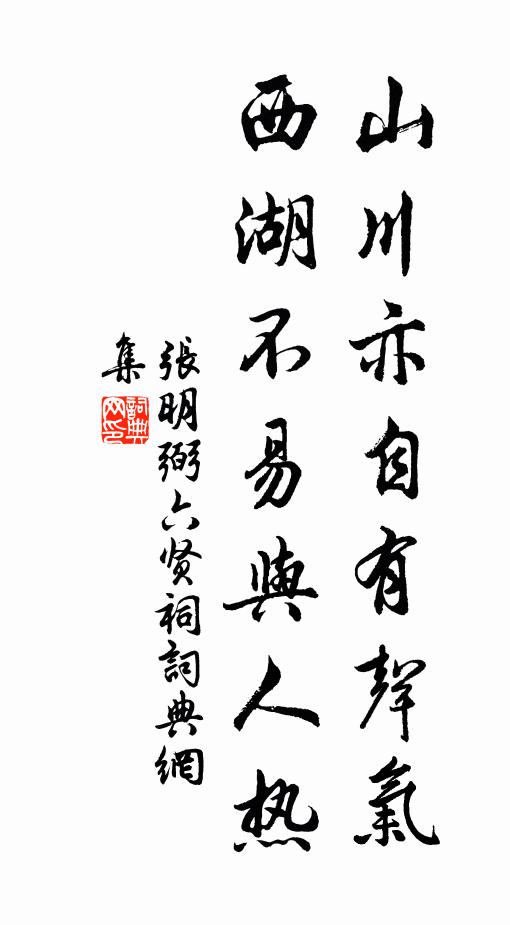 山川亦自有聲氣
西湖不易與人热
張明弼六贤祠詞典網
集
詞典網印